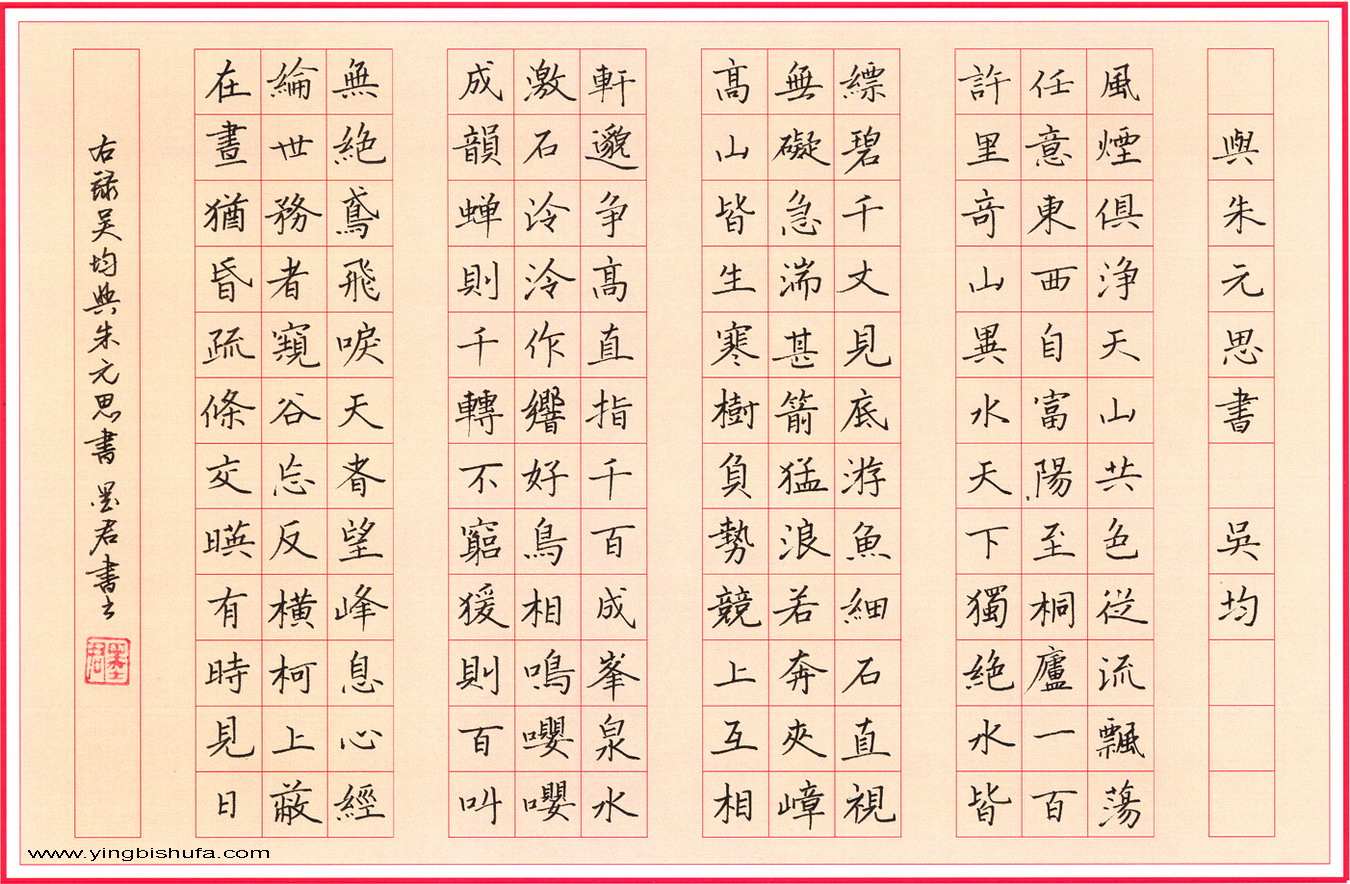 與朱元思書 吳均
風煙俱浄天山共色従流飄蕩
任意東西自富陽至桐廬一百
許里奇山異水天下獨絕水皆
縹碧千丈見底游魚細石直視
無礙急湍甚箭猛浪若奔夾嶂
髙山皆生寒樹負勢競上互相
軒邈争髙直指千百成峯泉水
激石泠泠作響好鳥相鳴嚶嚶
成韻蝉則千轉不窮猨則百叫
無絕鳶飛唳天者望峰息心經
綸世務者窺谷忘反橫柯上蔽
在晝猶昏疏條交暎有時見日
右録吴均與朱元思書 墨君書
www.yingbishufa.com